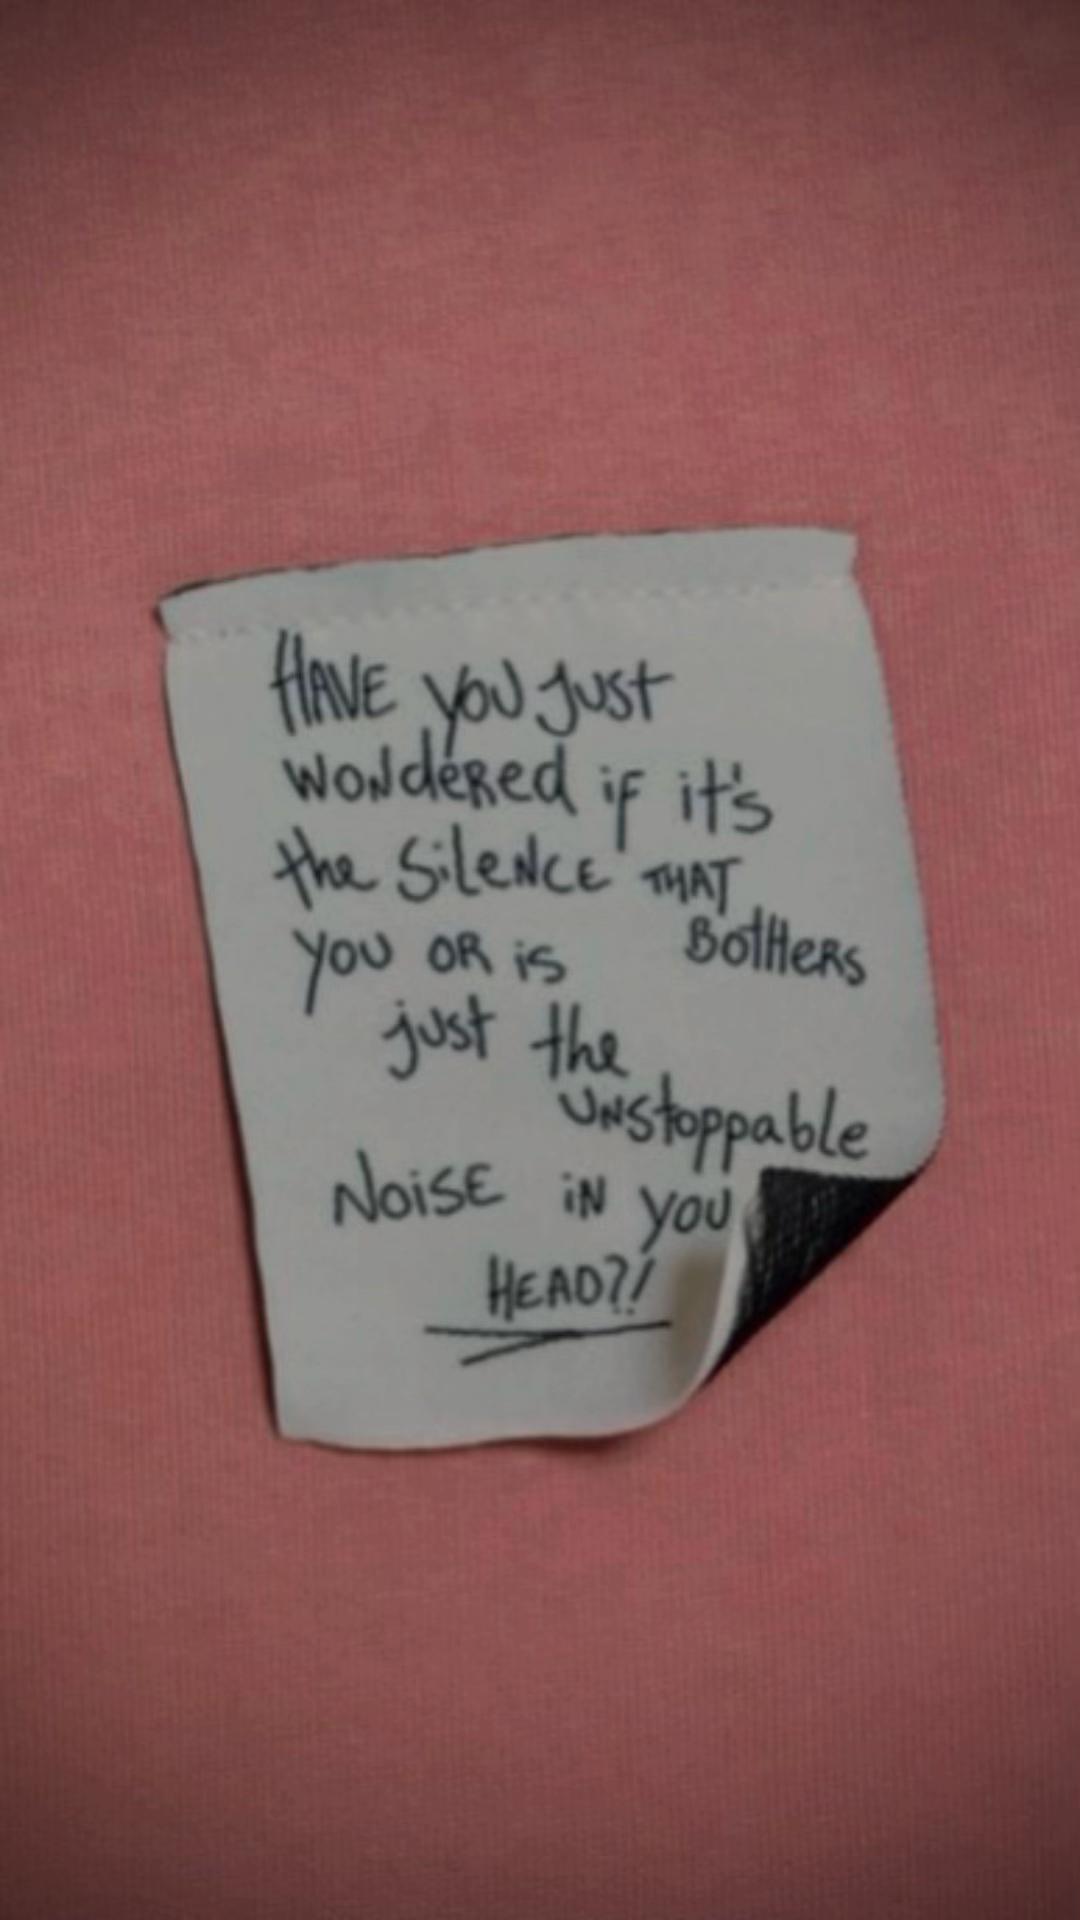 HAVE YOU JUST
WONdERed iF it's
the SileNCE THAT
BotHERS
YOU OR is
just the
UNstoppable
NOISE iN YOU
HEAD?!